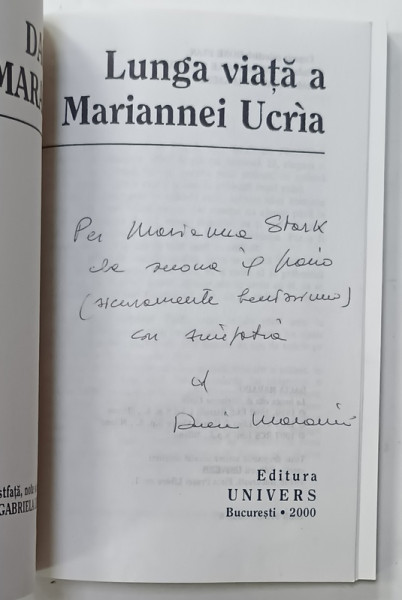 DA
MARA
Lunga viață a
Mariannei Ucrìa
Per Marianna Stark
che suona il piano
(sicuramente benissimo)
con simpatia
d
Dacia Maraini
Editura
UNIVERS
București • 2000
stfață, note
GABRIELA